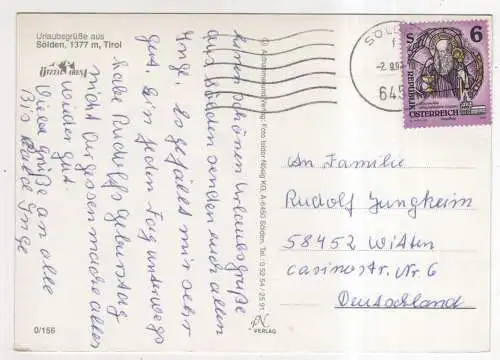 Urlaubsgrüße aus
Sölden, 1377 m, Tirol
ÖTZTAL ARENA
keinen schönen Urlaubsgrüße
aus Sölden senden euch allen
Inge. Es gefällt mir sehr
gut. Bin jeden Tag unterwegs
habe Rudolfs Geburtstag
nicht vergessen mache alles
wieder gut.
Viele grüße an alle
Bis bald Inge
0/156
Foto Isidor Nösig KG, A-6450 Sölden, Tel.: 0 52 54 / 25 91
N
VERLAG
SÖLDEN
645
S 6
REPUBLIK
ÖSTERREICH
An Familie
Rudolf Jungheim
58452 Witten
casinostr. Nr 6
Deutschland